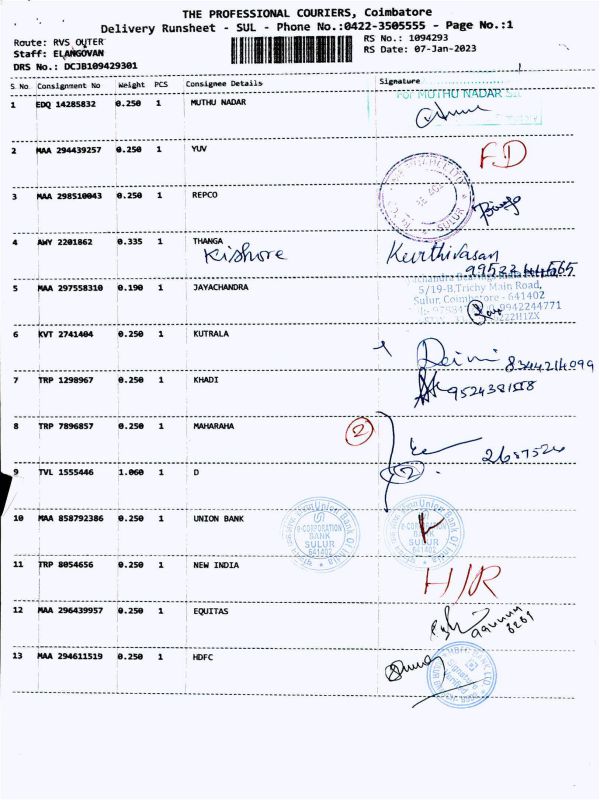 THE PROFESSIONAL COURIERS, Coimbatore
Delivery Runsheet - SUL - Phone No.:0422-3505555 - Page No.:1
Route: RVS OUTER
RS No.: 1094293
Staff: ELANGOVAN
RS Date: 07-Jan-2023
DRS No.: DCJB109429301
S. No Consignment No Weight PCS Consignee Details Signature
For MUTHU NADAR
1 EDQ 14285832 0.250 1 MUTHU NADAR
2 MAA 294439257 0.250 1 YUV FD
3 MAA 298510043 0.250 1 REPCO
SULUR
4 AWY 2201862 0.335 1 THANGA
Kishore Keerthivasan
5 MAA 297558310 0.190 1 JAYACHANDRA
5/19-B,Trichy Main Road,
Sulur, Coimbatore - 641402
9942244771
6 KVT 2741404 0.250 1 KUTRALA
8344214099
7 TRP 1298967 0.250 1 KHADI
9524381558
8 TRP 7896857 0.250 1 MAHARAHA 2
2687526
9 TVL 1555446 1.060 1 D 2
10 MAA 858792386 0.250 1 UNION BANK
Union Bank Of India
e-CORPORATION
BANK
SULUR
641402
Union Bank Of India
e-CORPORATION
BANK
SULUR
641402
11 TRP 8054656 0.250 1 NEW INDIA
H/R
12 MAA 296439957 0.250 1 EQUITAS
13 MAA 294611519 0.250 1 HDFC
HDFC BANK LTD
Signature
Verified